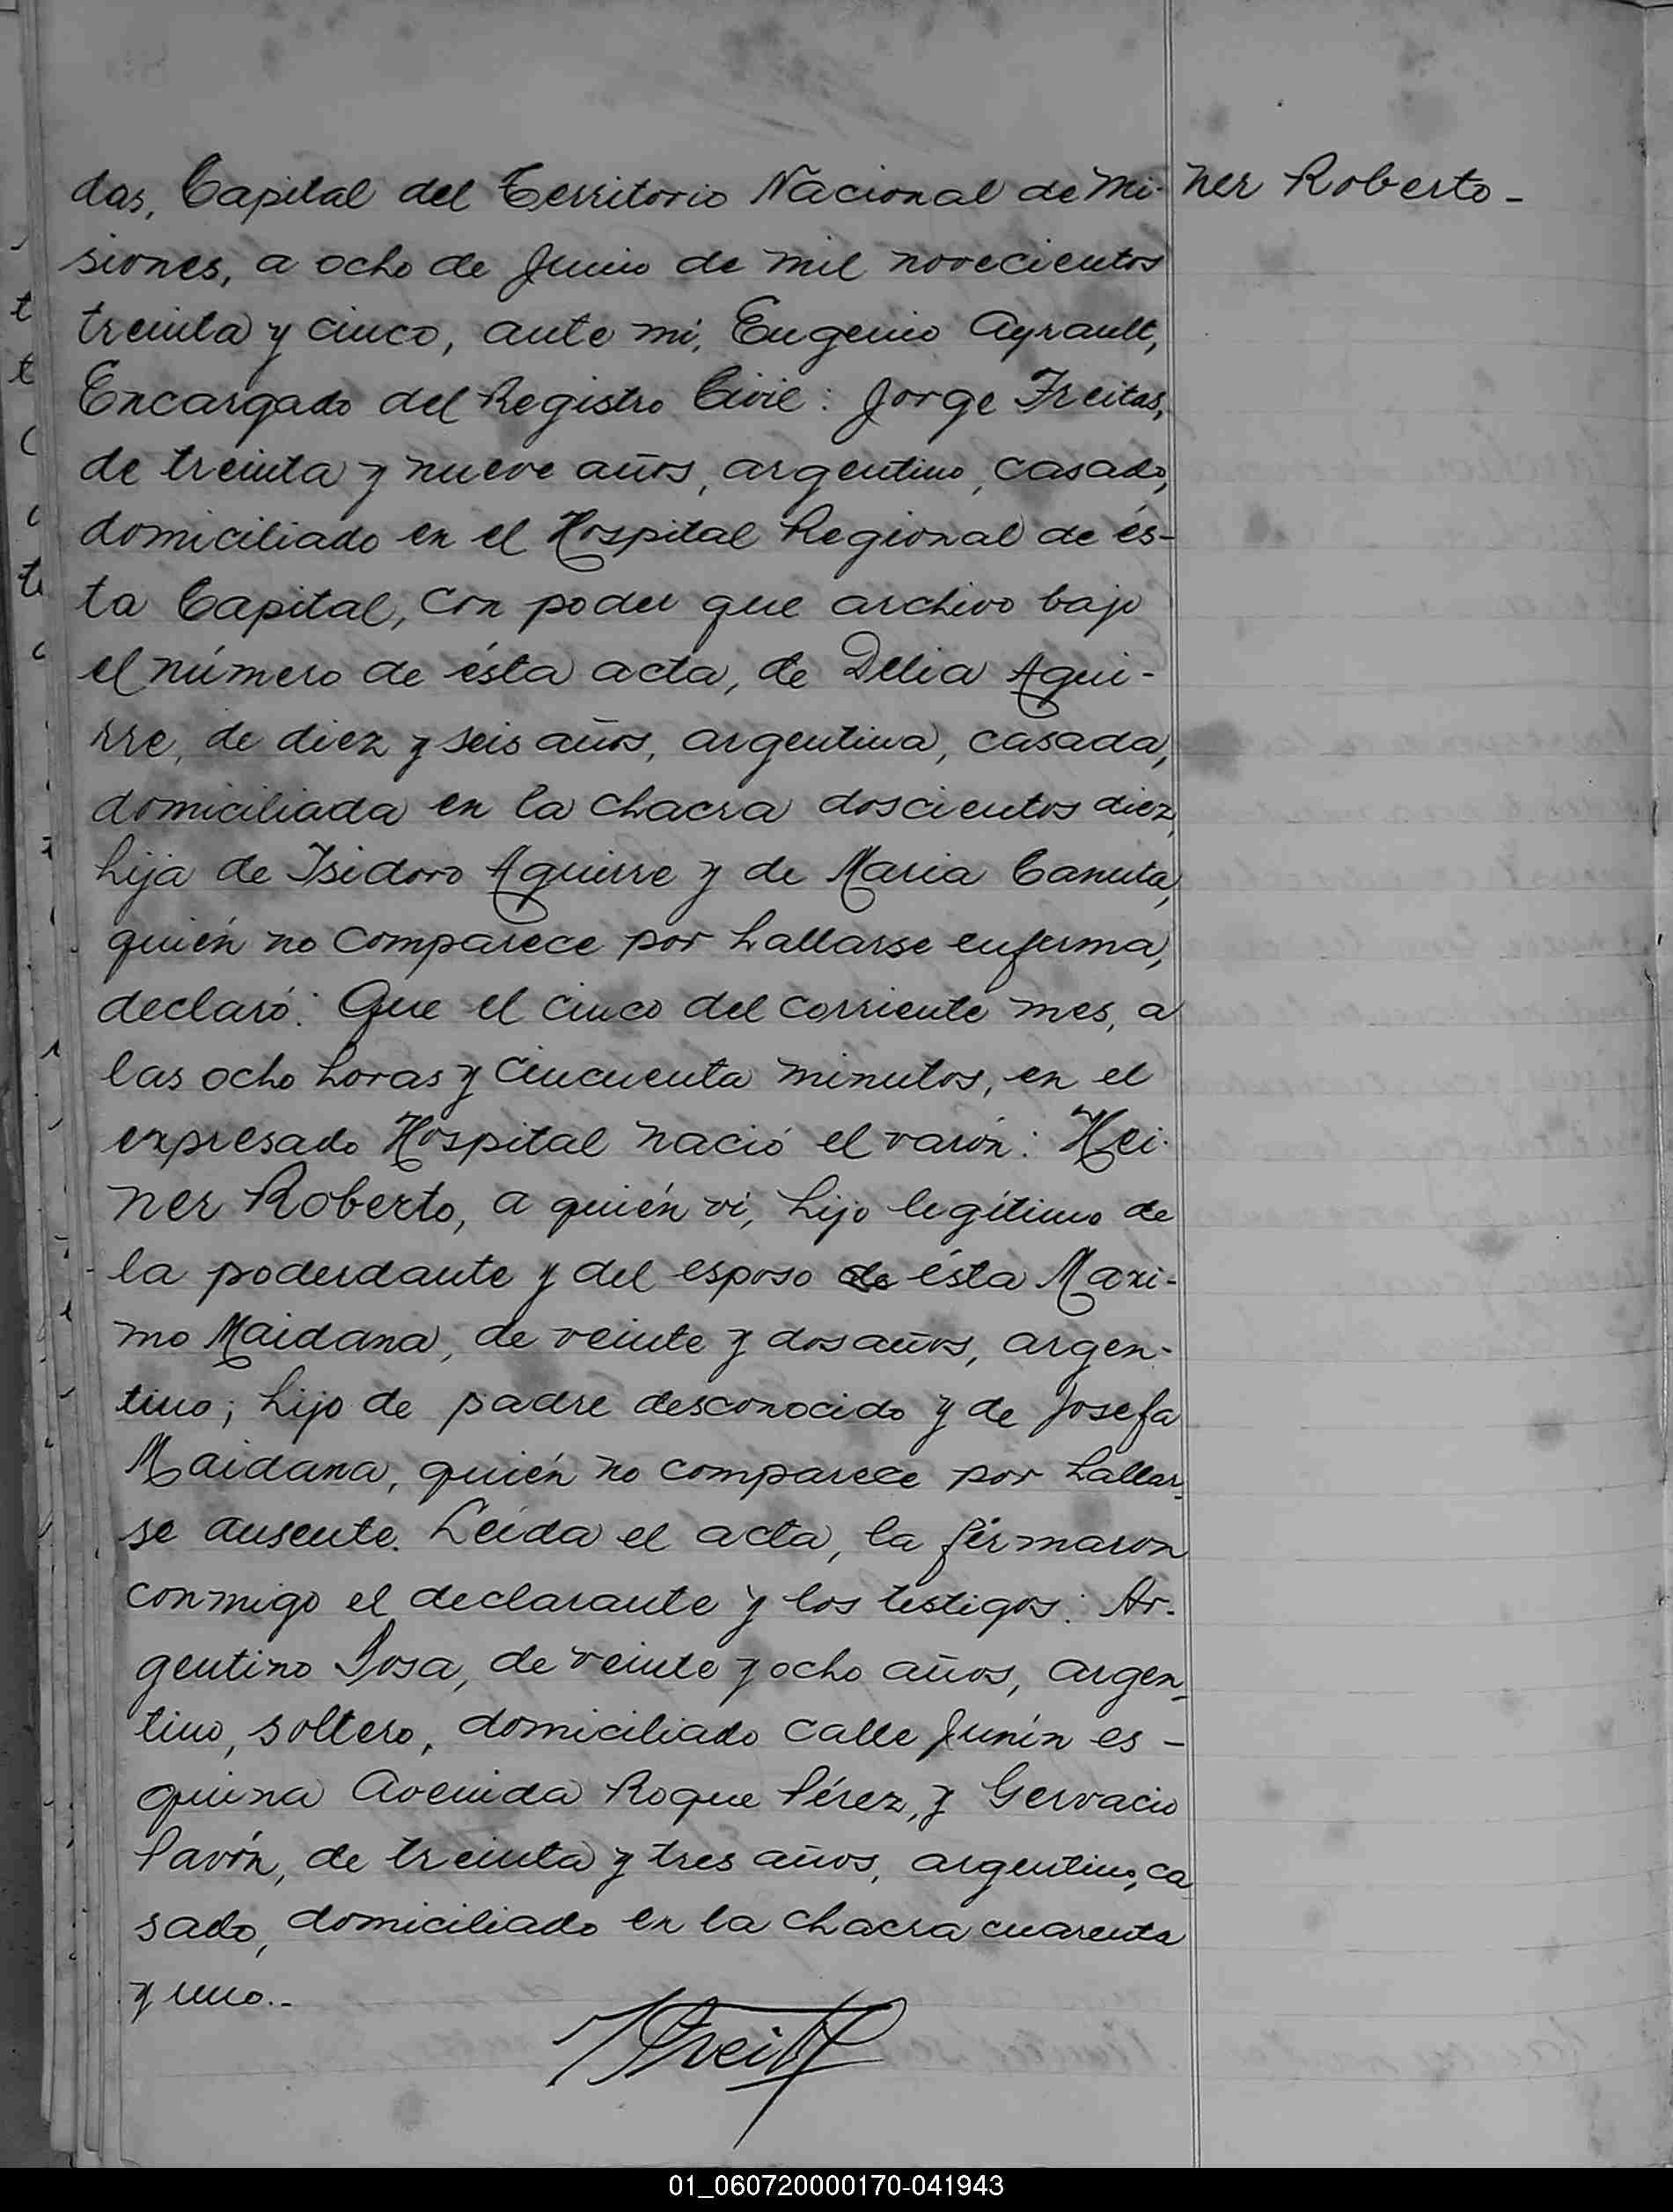 das, Capital del Territorio Nacional de Mi-
ner Roberto -
siones, a ocho de Junio de mil novecientos
treinta y cinco, ante mi, Eugenio Ayrault,
Encargado del Registro Civil: Jorge Freitas,
de treinta y nueve años, argentino, casado,
domiciliado en el Hospital Regional de és-
ta Capital, con poder que archivo bajo
el número de ésta acta, de Delia Agui-
rre, de diez y seis años, argentina, casada,
domiciliada en la chacra doscientos diez,
hija de Isidoro Aguirre y de Maria Canuta,
quién no comparece por hallarse enferma,
declaró: Que el cinco del corriente mes, a
las ocho horas y cincuenta minutos, en el
expresado Hospital nació el varón: Hei-
ner Roberto, a quién vi, hijo legítimo de
la poderdante y del esposo de ésta Maxi-
mo Maidana, de veinte y dos años, argen-
tino; hijo de padre desconocido y de Josefa
Maidana, quién no comparece por hallar-
se ausente. Leída el acta, la firmaron
conmigo el declarante y los testigos: Ar-
gentino Sosa, de veinte y ocho años, argen-
tino, soltero, domiciliado calle Junín es-
quina Avenida Roque Pérez, y Gervacio
Pavón, de treinta y tres años, argentino, ca
sado, domiciliado en la chacra cuarenta
y uno.-
01_060720000170-041943